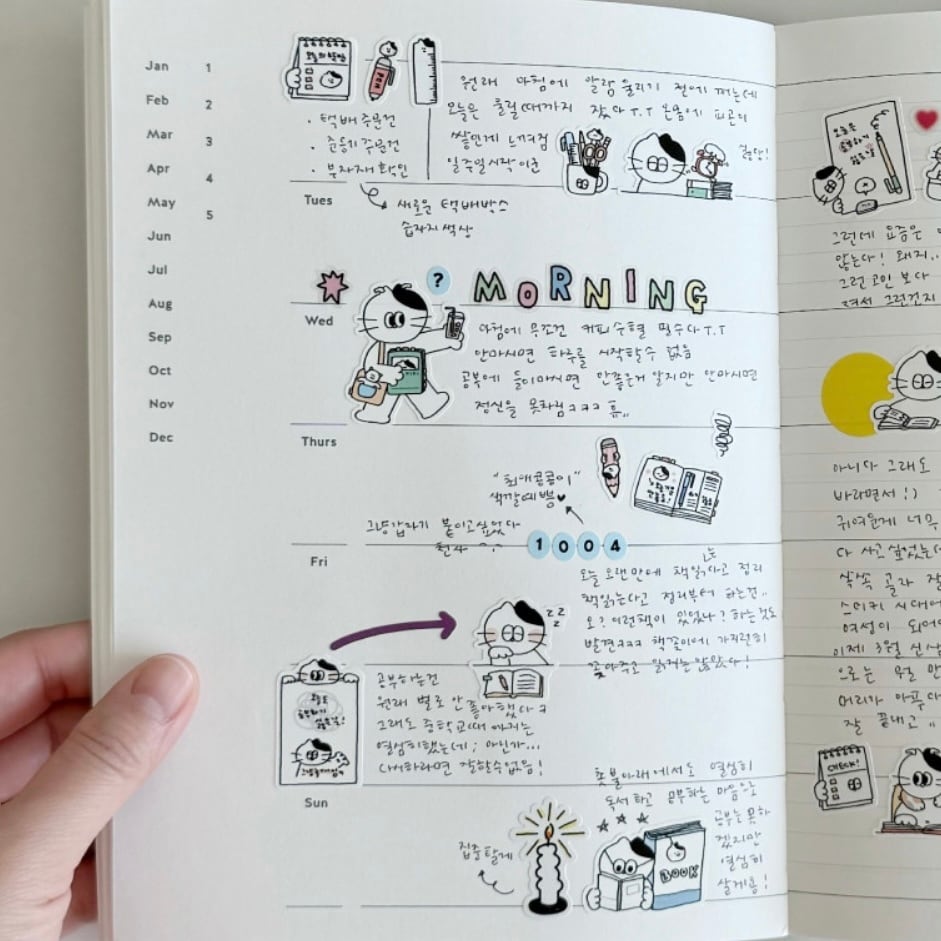 Jan 1
Feb 2
Mar 3
Apr 4
May 5
Jun
Jul
Aug
Sep
Oct
Nov
Dec
PEN
· 택배 주문건
· 준등기 주문건
· 부자재 확인
원래 아침에 알람 울리기 전에 깨는데
오늘은 울릴때까지 잤다 T.T 온몸에 피곤이
쌓인게 느껴짐
일주일 시작이군
Tues
새로운 택배박스
숫자지 색상
? MORNING
Wed
아침에 무조건 커피수혈 필수다 T.T
안마시면 하루를 시작할수 없음
공부에 들이마시면 안좋은거 알지만 안마시면
정신을 못차림 ㅋㅋㅋ 휴..
Thurs
"최애콩콩이"
색깔 예쁨♥
그냥 갑자기 붙이고 싶었다
천사 ^.^
1004
Fri
오늘 오랜만에 책읽는다고 정리
책읽는다고 정리부터 하는건..
오? 이런책이 있었나? 하는것도
발견 ㅋㅋㅋ 책꽂이에 가지런히
꽂아주고 읽지는 않았다!
z z z
공부하는건
원래 별로 안 좋아했다 ㅋ
그래도 중학교때 까지는
열심히했는데; 아닌가...
다 잘할수 없음!
Sun
촛불아래에서도 열심히
독서하고 공부하는 마음으로
공부는 못하
겠지만
열심히
살게용!
집중할게
BOOK
오늘은
공부하기
싫은날
그런데 요즘은
않는다! 돼지..
그런 고민 보다
그런건지
아니다 그래도
바라면서 :)
귀여운게 너무
다 사고 싶었는데
쏙쏙 골라
스미키 시대에
여성이 되어
이제 3월 신상
으로는
머리가 아프다
잘 끝내고 "
CHECK!